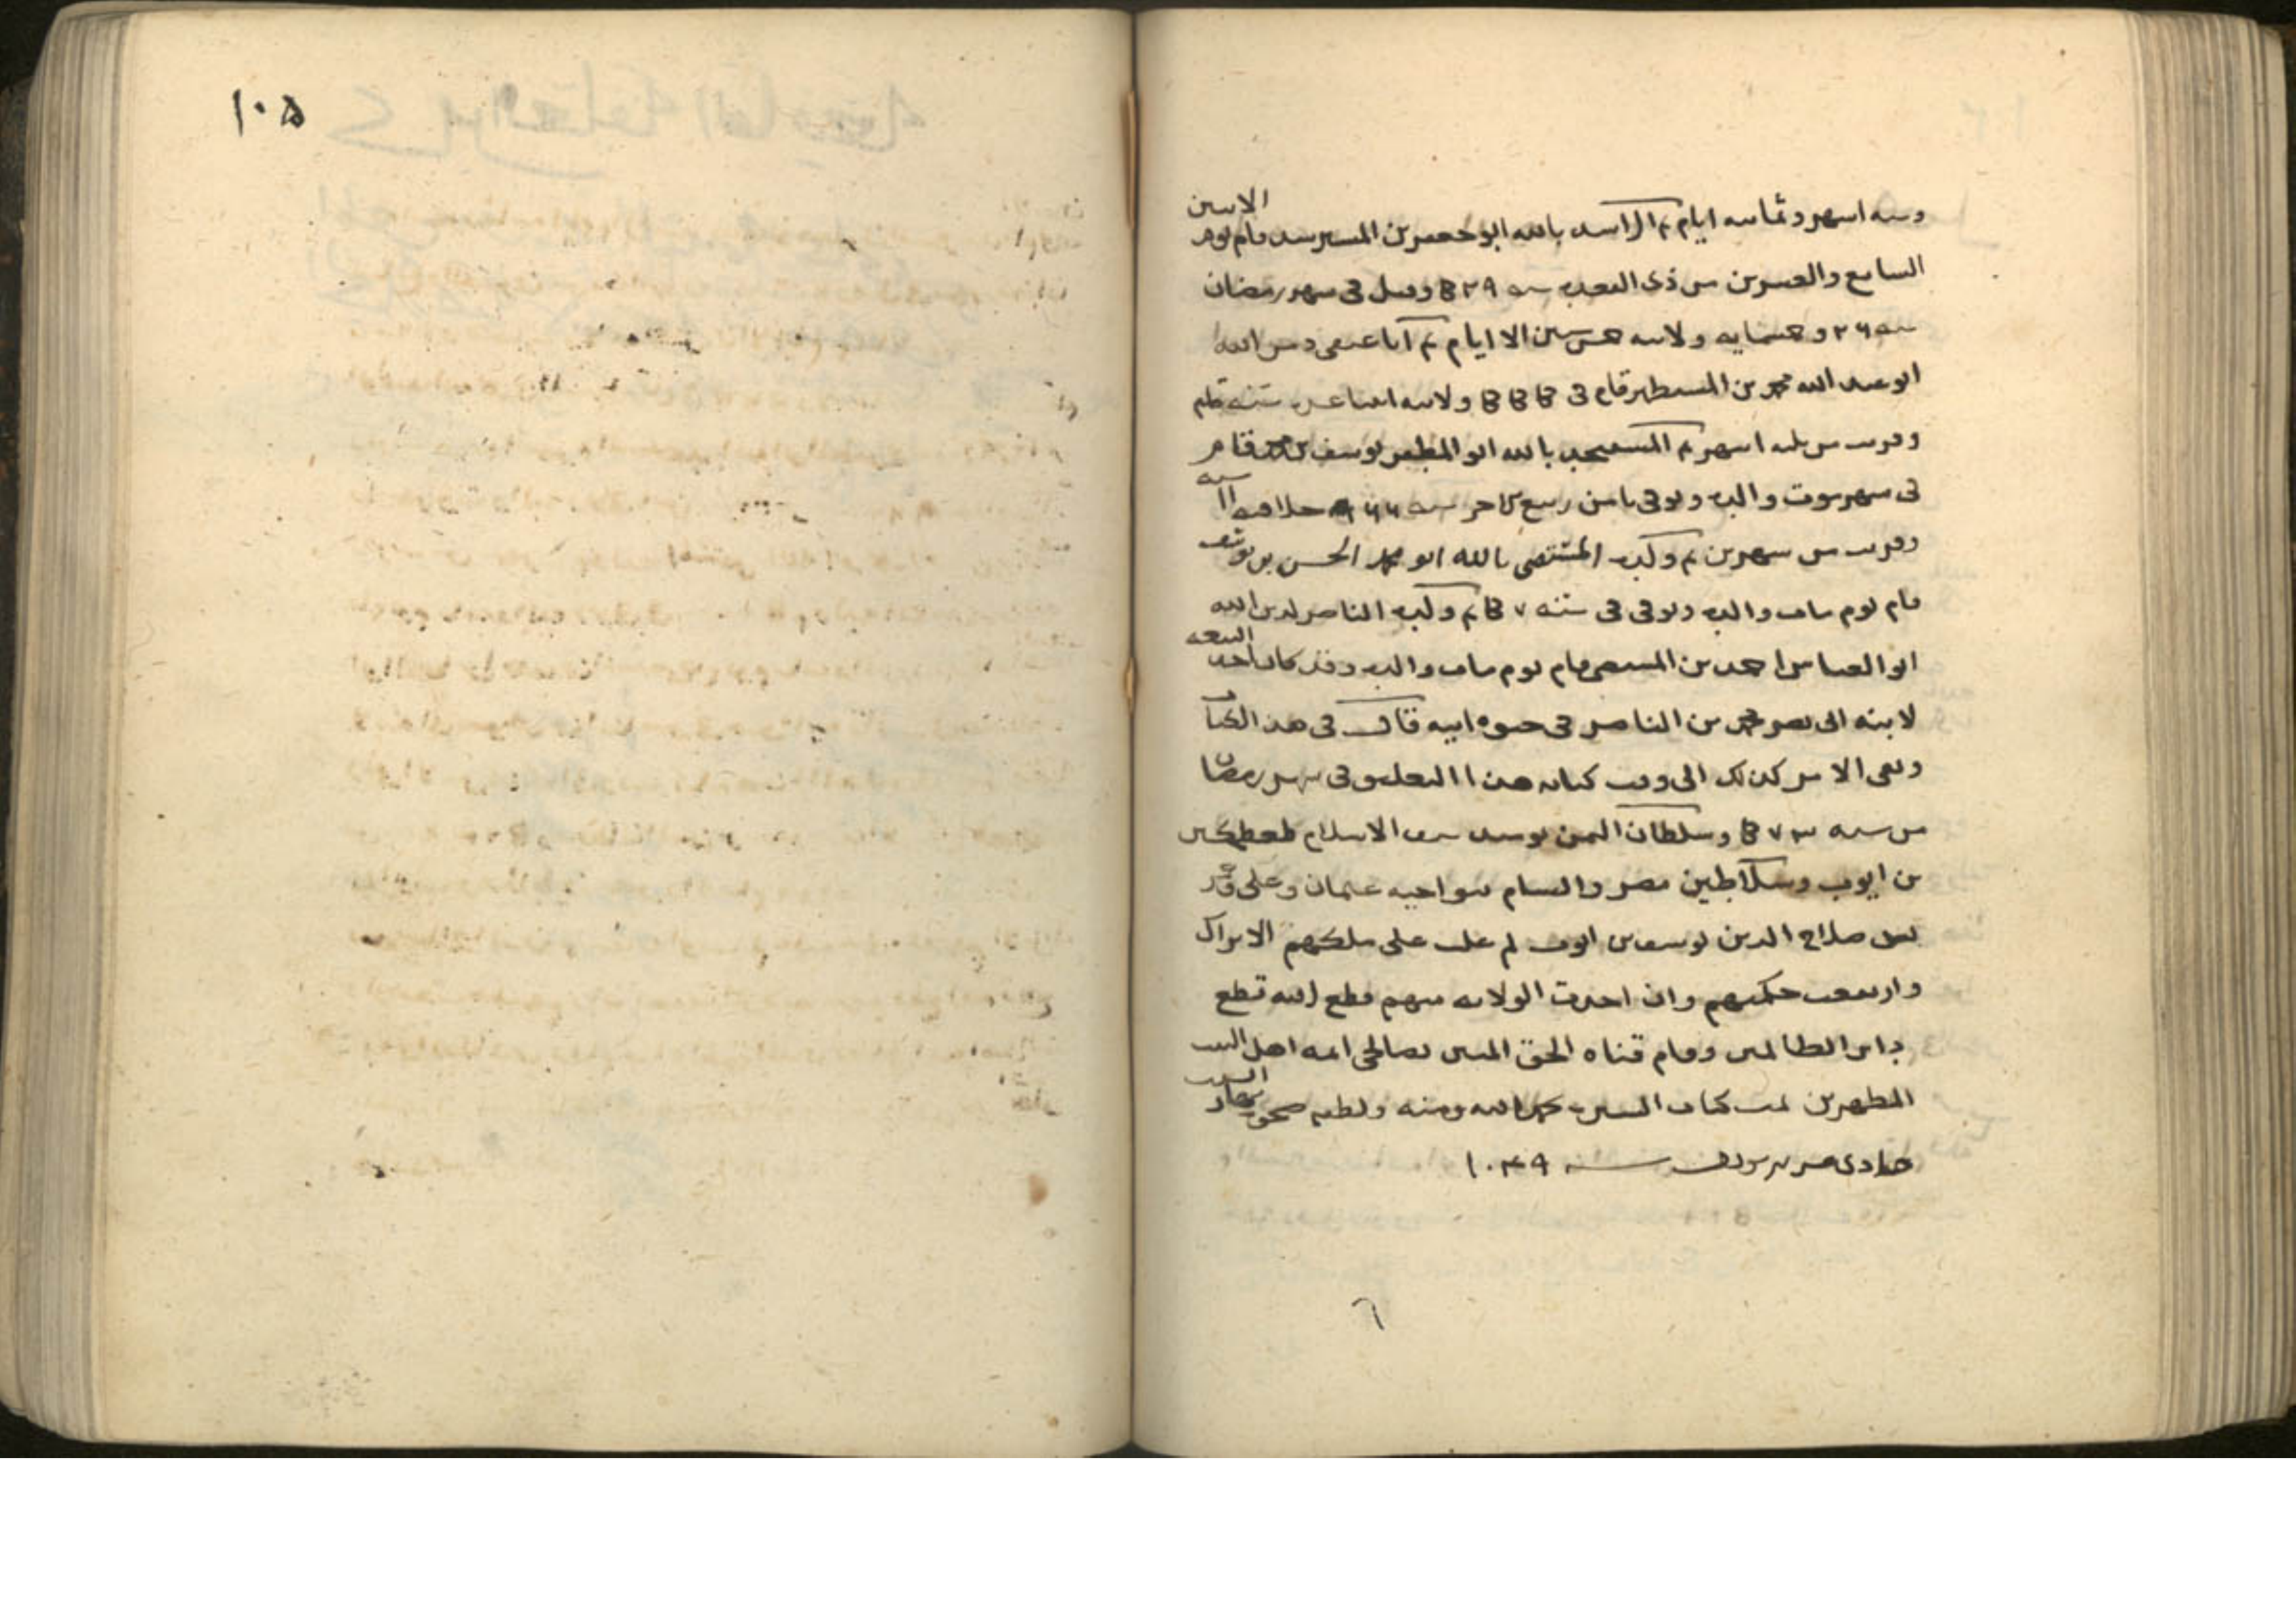 وسه اسهر وثمانيه ايام ثم الراسد بالله ابو جعفر بن المسترسد قام يوم الاسين
السابع والعسرين من ذى القعده سنه ٥٢٩ وقتل فى سهر رمضان
سنه و خمسمايه ولايته الا ايام ثم
ابو عبد الله محمد بن المستظهر قام فى ولايته سنه
وقريب من ثلثه اسهر ثم المستنجد بالله ابو المظفر يوسف بن محمد قام
فى سهر موت والده وتوفى ثامن ربيع الاخر سنه ٥٦٦ خلافته ١١ سنه
وقريب من سهرين ثم ولده المستضى بالله ابو محمد الحسن بن يوسف
قام يوم مات والده وتوفى فى سنه ثم ولده الناصر لدين الله
ابو العباس احمد بن المستضى قام يوم مات والده وقد كان اخذ البيعه
لابنه ابى نصر محمد بن الناصر فى حيوه ابيه قال فى هذا الكتاب
وبقى الامر كذلك الى وقت كتابه هذا التعليق فى سهر رمضان
من سنه وسلطان اليمن يومىد سيف الاسلام طغطكين
بن ايوب وسلاطين مصر والسام بنو اخيه عثمان وعلى
بنى صلاح الدين يوسف بن ايوب ثم غلب على ملكهم الاتراك
وارتفعت حكمتهم وان اخذت الولايه منهم قطع الله قطع
دابر الظالمين وقام قناه الحق المبين بصالحى ايمه اهل البيت
المطهرين تمت كتاب السيره بحمد الله ومنه ولطفه نهار السبت
حادى سنه ١٠٤٩
١٠٥